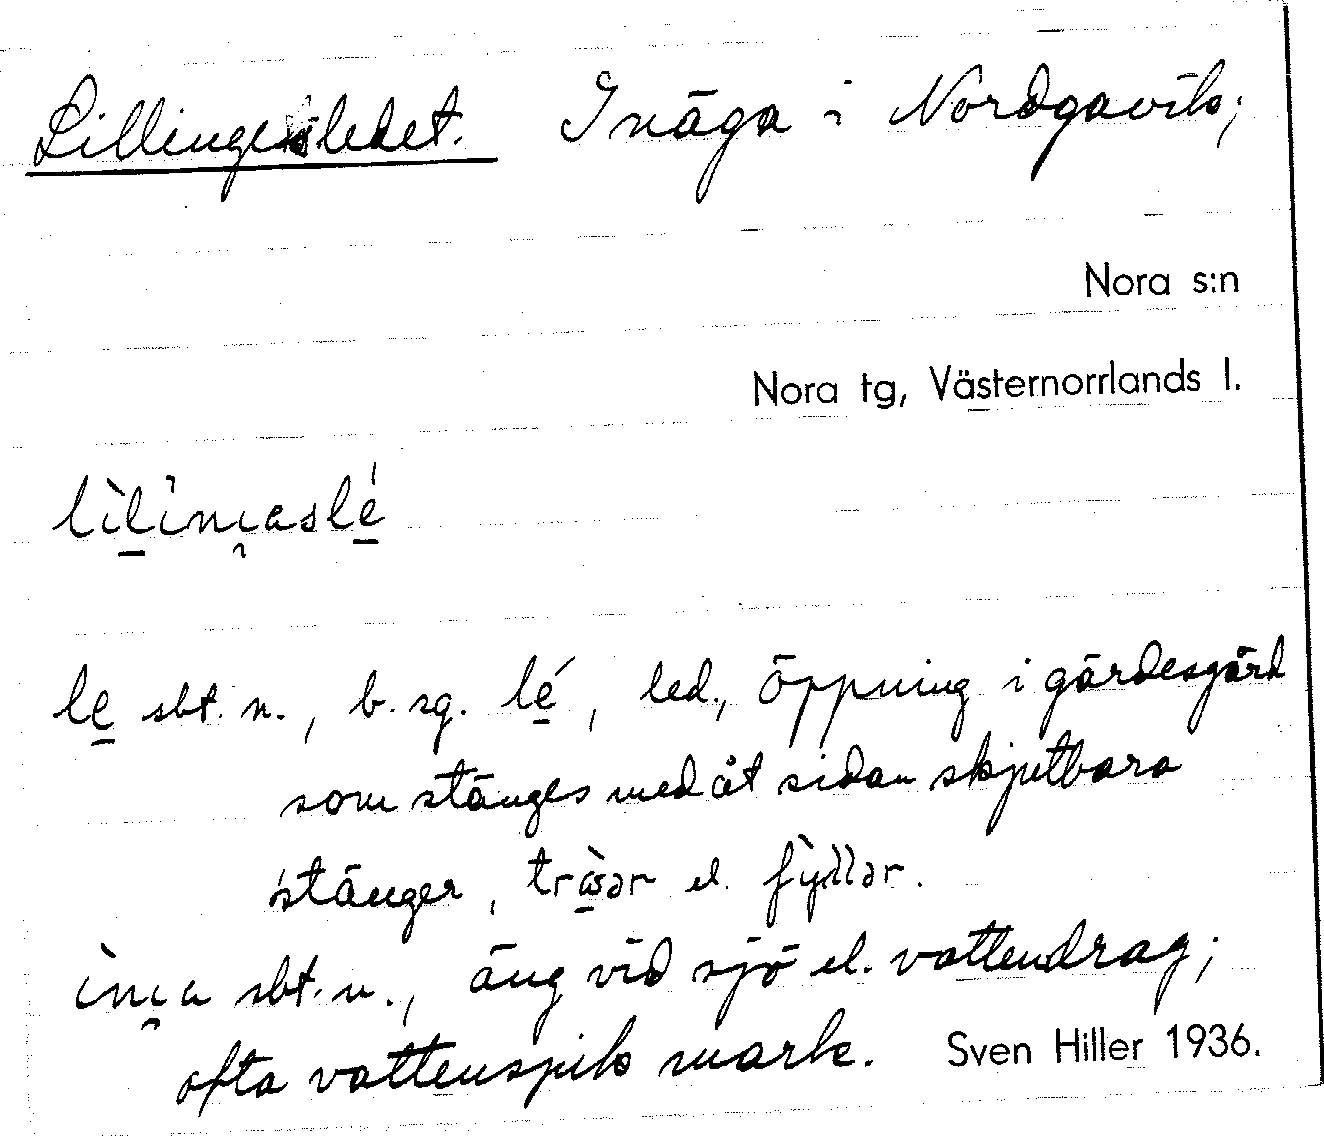 Lillingesledet. Inäga i Nordgavik;
Nora s:n
Nora tg, Västernorrlands l.
lìlìnɩaslé
le sbt. n., b. sg. lé, led, öppning i gärdesgård
som stänges med åt sidan skjutbara
stänger, tràsər el. fỳllər.
ìnɩa sbt. n., äng vid sjö el. vattendrag;
ofta vattensjuk mark. Sven Hiller 1936.